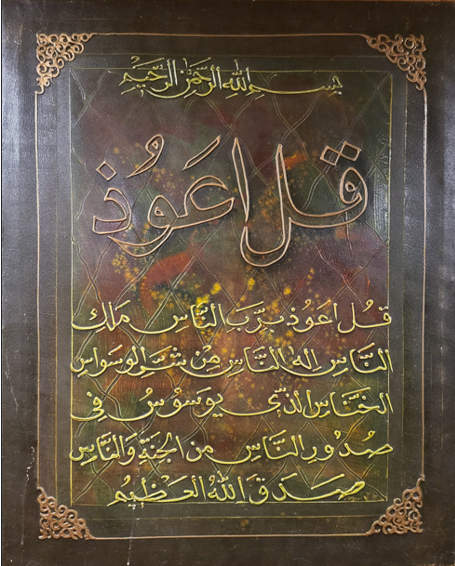 بسم الله الرحمن الرحيم
قل اعوذ
قل اعوذ برب الناس ملك
الناس اله الناس من شر الوسواس
الخناس الذي يوسوس في
صدور الناس من الجنة والناس
صدق الله العظيم